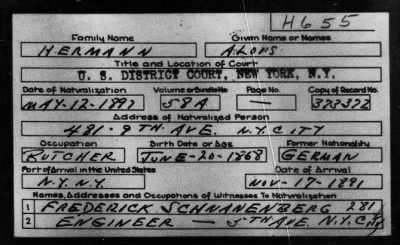 H655
Family Name Given Name or Names
HERMANN ALOUS
Title and Location of Court
U. S. DISTRICT COURT, NEW YORK, N.Y.
Date of Naturalization Volume or Bundle No Page No. Copy of Record No.
MAY-12-1897 58A — 323322
Address of Naturalized Person
481-9TH AVE. N.Y. CITY
Occupation Birth Date or Age Former Nationality
BUTCHER JUNE-20-1868 GERMAN
Port of Arrival in the United States Date of Arrival
N.Y. N.Y. NOV-17-1891
Names, Addresses and Occupations of Witnesses To Naturalization
1 FREDERICK SCHNANENBERG 281
2 ENGINEER — 5TH AVE. N.Y. City